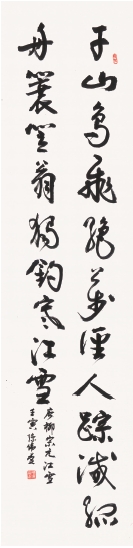 千山鳥飛絕萬徑人踪滅孤
舟蓑笠翁獨釣寒江雪
唐柳宗元江雪
壬寅